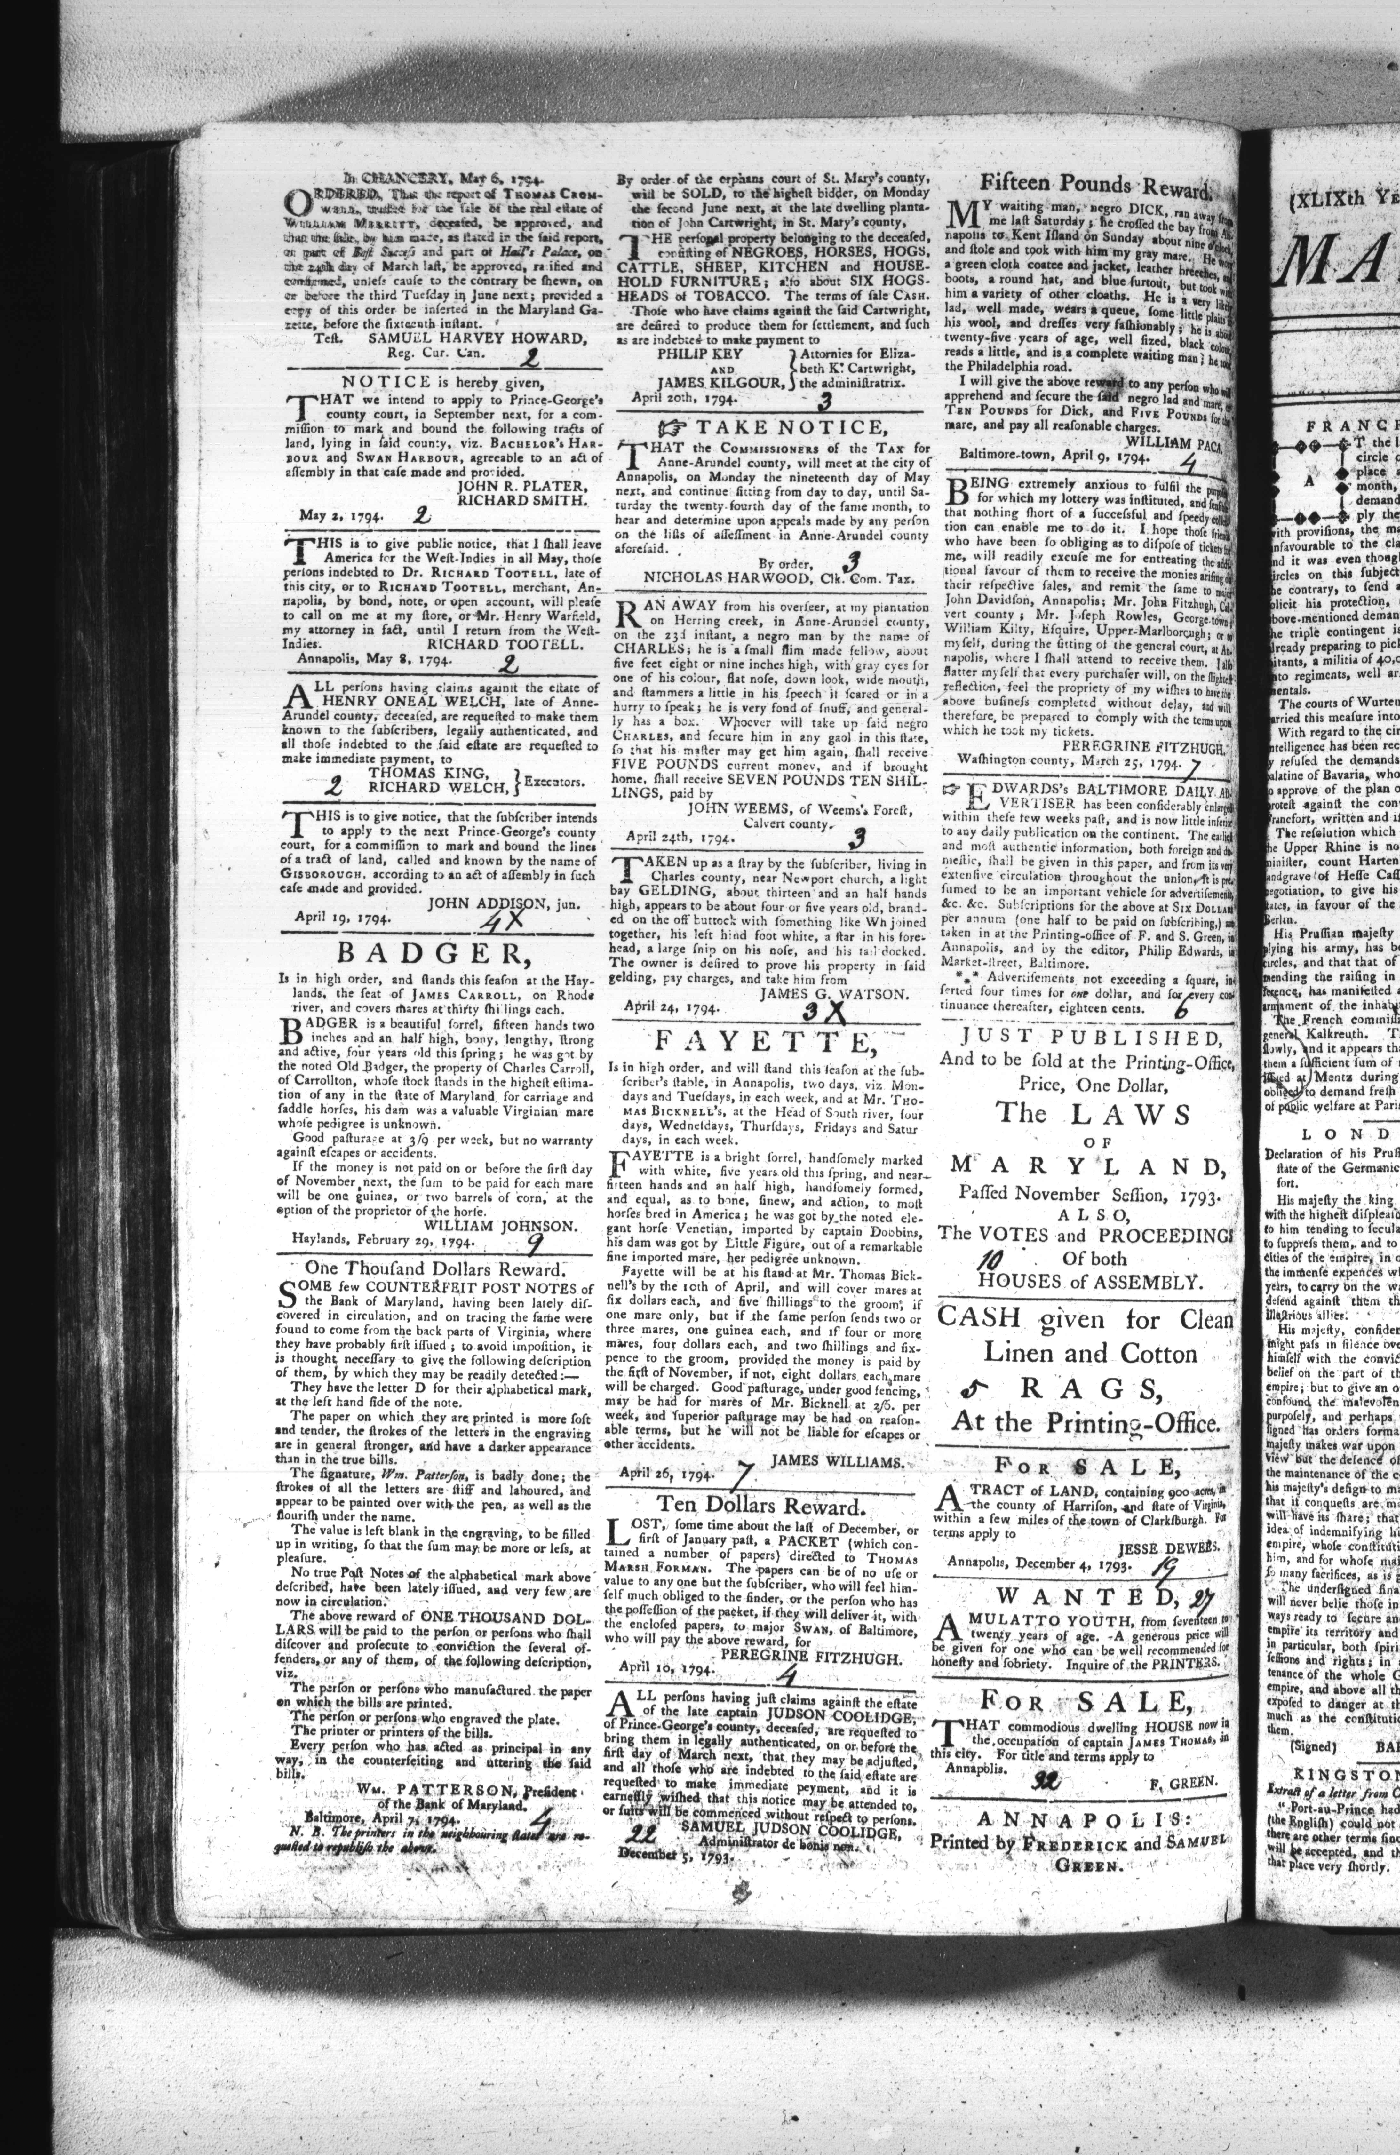 In CHANCERY, May 6, 1794.
ORDERED, That the report of THOMAS CROM-
WELL, trustee for the sale of the real estate of
WILLIAM MERRITT, deceased, be approved, and
that the sale, by him made, as stated in the said report,
on part of Best Success and part of Hall's Palace, on
the 24th day of March last, be approved, ratified and
confirmed, unless cause to the contrary be shewn, on
or before the third Tuesday in June next; provided a
copy of this order be inserted in the Maryland Ga-
zette, before the sixteenth instant.
Test. SAMUEL HARVEY HOWARD,
Reg. Cur. Can. 2
NOTICE is hereby given,
THAT we intend to apply to Prince-George's
county court, in September next, for a com-
mission to mark and bound the following tracts of
land, lying in said county, viz. BACHELOR'S HAR-
BOUR and SWAN HARBOUR, agreeable to an act of
assembly in that case made and provided.
JOHN R. PLATER,
RICHARD SMITH.
May 2, 1794. 2
THIS is to give public notice, that I shall leave
America for the West-Indies in all May, those
persons indebted to Dr. RICHARD TOOTELL, late of
this city, or to RICHARD TOOTELL, merchant, An-
napolis, by bond, note, or open account, will please
to call on me at my store, or Mr. Henry Warfield,
my attorney in fact, until I return from the West-
Indies. RICHARD TOOTELL.
Annapolis, May 8, 1794. 2
ALL persons having claims against the estate of
HENRY ONEAL WELCH, late of Anne-
Arundel county, deceased, are requested to make them
known to the subscribers, legally authenticated, and
all those indebted to the said estate are requested to
make immediate payment, to
THOMAS KING,
2 RICHARD WELCH, } Executors.
THIS is to give notice, that the subscriber intends
to apply to the next Prince-George's county
court, for a commission to mark and bound the lines
of a tract of land, called and known by the name of
GISBOROUGH, according to an act of assembly in such
case made and provided.
JOHN ADDISON, jun.
April 19, 1794. 4X
BADGER,
Is in high order, and stands this season at the Hay-
lands, the seat of JAMES CARROLL, on Rhode
river, and covers mares at thirty shillings each.
BADGER is a beautiful sorrel, fifteen hands two
inches and an half high, bony, lengthy, strong
and active, four years old this spring; he was got by
the noted Old Badger, the property of Charles Carroll,
of Carrollton, whose stock stands in the highest estima-
tion of any in the state of Maryland for carriage and
saddle horses, his dam was a valuable Virginian mare
whose pedigree is unknown.
Good pasturage at 3/9 per week, but no warranty
against escapes or accidents.
If the money is not paid on or before the first day
of November next, the sum to be paid for each mare
will be one guinea, or two barrels of corn, at the
option of the proprietor of the horse.
WILLIAM JOHNSON.
Haylands, February 29, 1794. 9
One Thousand Dollars Reward.
SOME few COUNTERFEIT POST NOTES of
the Bank of Maryland, having been lately dis-
covered in circulation, and on tracing the same were
found to come from the back parts of Virginia, where
they have probably first issued; to avoid imposition, it
is thought necessary to give the following description
of them, by which they may be readily detected:—
They have the letter D for their alphabetical mark,
at the left hand side of the note.
The paper on which they are printed is more soft
and tender, the strokes of the letters in the engraving
are in general stronger, and have a darker appearance
than in the true bills.
The signature, Wm. Patterson, is badly done; the
strokes of all the letters are stiff and laboured, and
appear to be painted over with the pen, as well as the
flourish under the name.
The value is left blank in the engraving, to be filled
up in writing, so that the sum may be more or less, at
pleasure.
No true Post Notes of the alphabetical mark above
described, have been lately issued, and very few are
now in circulation.
The above reward of ONE THOUSAND DOL-
LARS will be paid to the person or persons who shall
discover and prosecute to conviction the several of-
fenders, or any of them, of the following description,
viz.
The person or persons who manufactured the paper
on which the bills are printed.
The person or persons who engraved the plate.
The printer or printers of the bills.
Every person who has acted as principal in any
way, in the counterfeiting and uttering the said
bills.
WM. PATTERSON, President
of the Bank of Maryland.
Baltimore, April 7, 1794. 4
N. B. The printers in the neighbouring states are re-
quested to republish the above.
By order of the orphans court of St. Mary's county,
will be SOLD, to the highest bidder, on Monday
the second June next, at the late dwelling planta-
tion of John Cartwright, in St. Mary's county,
THE personal property belonging to the deceased,
consisting of NEGROES, HORSES, HOGS,
CATTLE, SHEEP, KITCHEN and HOUSE-
HOLD FURNITURE; also about SIX HOGS-
HEADS of TOBACCO. The terms of sale CASH.
Those who have claims against the said Cartwright,
are desired to produce them for settlement, and such
as are indebted to make payment to
PHILIP KEY } Attornies for Eliza-
AND } beth K. Cartwright,
JAMES KILGOUR, } the administratrix.
April 20th, 1794. 3
☞ TAKE NOTICE,
THAT the COMMISSIONERS of the TAX for
Anne-Arundel county, will meet at the city of
Annapolis, on Monday the nineteenth day of May
next, and continue sitting from day to day, until Sa-
turday the twenty-fourth day of the same month, to
hear and determine upon appeals made by any person
on the lists of assessment in Anne-Arundel county
aforesaid.
By order, 3
NICHOLAS HARWOOD, Clk. Com. Tax.
RAN AWAY from his overseer, at my plantation
on Herring creek, in Anne-Arundel county,
on the 23d instant, a negro man by the name of
CHARLES; he is a small slim made fellow, about
five feet eight or nine inches high, with gray eyes for
one of his colour, flat nose, down look, wide mouth,
and stammers a little in his speech if scared or in a
hurry to speak; he is very fond of snuff, and general-
ly has a box. Whoever will take up said negro
CHARLES, and secure him in any gaol in this state,
so that his master may get him again, shall receive
FIVE POUNDS current money, and if brought
home, shall receive SEVEN POUNDS TEN SHIL-
LINGS, paid by
JOHN WEEMS, of Weems's Forest,
Calvert county.
April 24th, 1794. 3
TAKEN up as a stray by the subscriber, living in
Charles county, near Newport church, a light
bay GELDING, about thirteen and an half hands
high, appears to be about four or five years old, brand-
ed on the off buttock with something like Wh joined
together, his left hind foot white, a star in his fore-
head, a large snip on his nose, and his tail docked.
The owner is desired to prove his property in said
gelding, pay charges, and take him from
JAMES G. WATSON.
April 24, 1794. 3X
FAYETTE,
Is in high order, and will stand this season at the sub-
scriber's stable, in Annapolis, two days, viz. Mon-
days and Tuesdays, in each week, and at Mr. THO-
MAS BICKNELL's, at the Head of South river, four
days, Wednesdays, Thursdays, Fridays and Satur
days, in each week.
FAYETTE is a bright sorrel, handsomely marked
with white, five years old this spring, and near
fifteen hands and an half high, handsomely formed,
and equal, as to bone, sinew, and action, to most
horses bred in America; he was got by the noted ele-
gant horse Venetian, imported by captain Dobbins,
his dam was got by Little Figure, out of a remarkable
fine imported mare, her pedigree unknown.
Fayette will be at his stand at Mr. Thomas Bick-
nell's by the 10th of April, and will cover mares at
six dollars each, and five shillings to the groom, if
one mare only, but if the same person sends two or
three mares, one guinea each, and if four or more
mares, four dollars each, and two shillings and six-
pence to the groom, provided the money is paid by
the first of November, if not, eight dollars each mare
will be charged. Good pasturage, under good fencing,
may be had for mares of Mr. Bicknell at 2/6. per
week, and superior pasturage may be had on reason-
able terms, but he will not be liable for escapes or
other accidents.
JAMES WILLIAMS.
April 26, 1794. 7
Ten Dollars Reward.
LOST, some time about the last of December, or
first of January past, a PACKET (which con-
tained a number of papers) directed to THOMAS
MARSH FORMAN. The papers can be of no use or
value to any one but the subscriber, who will feel him-
self much obliged to the finder, or the person who has
the possession of the packet, if they will deliver it, with
the enclosed papers, to major SWAN, of Baltimore,
who will pay the above reward, for
PEREGRINE FITZHUGH.
April 10, 1794. 4
ALL persons having just claims against the estate
of the late captain JUDSON COOLIDGE,
of Prince-George's county, deceased, are requested to
bring them in legally authenticated, on or before the
first day of March next, that they may be adjusted,
and all those who are indebted to the said estate are
requested to make immediate peyment, and it is
earnestly wished that this notice may be attended to,
or suits will be commenced without respect to persons.
22 SAMUEL JUDSON COOLIDGE,
Administrator de bonis non.
December 5, 1793.
Fifteen Pounds Reward.
MY waiting man, negro DICK, ran away from
me last Saturday; he crossed the bay from An-
napolis to Kent Island on Sunday about nine o'clock,
and stole and took with him my gray mare. He wore
a green cloth coatee and jacket, leather breeches, and
boots, a round hat, and blue surtout, but took with
him a variety of other cloaths. He is a very likely
lad, well made, wears a queue, some little plaits in
his wool, and dresses very fashionably; he is about
twenty-five years of age, well sized, black colour,
reads a little, and is a complete waiting man; he took
the Philadelphia road.
I will give the above reward to any person who will
apprehend and secure the said negro lad and mare, or
TEN POUNDS for Dick, and FIVE POUNDS for the
mare, and pay all reasonable charges.
WILLIAM PACA.
Baltimore-town, April 9, 1794. 4
BEING extremely anxious to fulfil the purpose
for which my lottery was instituted, and sensible
that nothing short of a successful and speedy collec-
tion can enable me to do it. I hope those friends
who have been so obliging as to dispose of tickets for
me, will readily excuse me for entreating the addi-
tional favour of them to receive the monies arising on
their respective sales, and remit the same to major
John Davidson, Annapolis; Mr. John Fitzhugh, Cal-
vert county; Mr. Joseph Rowles, George-town;
William Kilty, Esquire, Upper-Marlborough; or to
myself, during the sitting of the general court, at An-
napolis, where I shall attend to receive them. I also
flatter myself that every purchaser will, on the slightest
reflection, feel the propriety of my wishes to have the
above business completed without delay, and will
therefore, be prepared to comply with the terms upon
which he took my tickets.
PEREGRINE FITZHUGH.
Washington county, March 25, 1794. 7
☞ EDWARDS's BALTIMORE DAILY AD-
VERTISER has been considerably enlarged
within these few weeks past, and is now little inferior
to any daily publication on the continent. The earliest
and most authentic information, both foreign and do-
mestic, shall be given in this paper, and from its very
extensive circulation throughout the union, it is pre-
sumed to be an important vehicle for advertisements,
&c. &c. Subscriptions for the above at SIX DOLLARS
per annum (one half to be paid on subscribing,) are
taken in at the Printing-office of F. and S. Green, in
Annapolis, and by the editor, Philip Edwards, in
Market-street, Baltimore.
*** Advertisements not exceeding a square, in-
serted four times for one dollar, and for every con-
tinuance thereafter, eighteen cents. 6
JUST PUBLISHED,
And to be sold at the Printing-Office,
Price, One Dollar,
The LAWS
OF
MARYLAND,
Passed November Session, 1793.
ALSO,
The VOTES and PROCEEDINGS
10 Of both
HOUSES of ASSEMBLY.
CASH given for Clean
Linen and Cotton
5 RAGS,
At the Printing-Office.
FOR SALE,
A TRACT of LAND, containing 900 acres, in
the county of Harrison, and state of Virginia,
within a few miles of the town of Clarksburgh. For
terms apply to
JESSE DEWEES.
Annapolis, December 4, 1793. 19
WANTED, 27
A MULATTO YOUTH, from seventeen to
twenty years of age. A generous price will
be given for one who can be well recommended for
honesty and sobriety. Inquire of the PRINTERS.
FOR SALE,
THAT commodious dwelling HOUSE now in
the occupation of captain JAMES THOMAS, in
this city. For title and terms apply to
Annapolis. 32 F. GREEN.
ANNAPOLIS:
Printed by FREDERICK and SAMUEL
GREEN.
(XLIXth YE
MA
FRANC
A
T the l
circle o
place o
month,
demand
ply the
with provisions, the ma
LOND
Declaration of his Prus
state of the Germanic
sort.
His majesty the king
with the highest displeas
to him tending to secula
to suppress them, and to
The undersigned
(Signed) BA
KINGSTON
Extract of a letter from C
"Port-au-Prince had
(the English) could not
there are other terms
will be accepted, and th
that place very shortly.